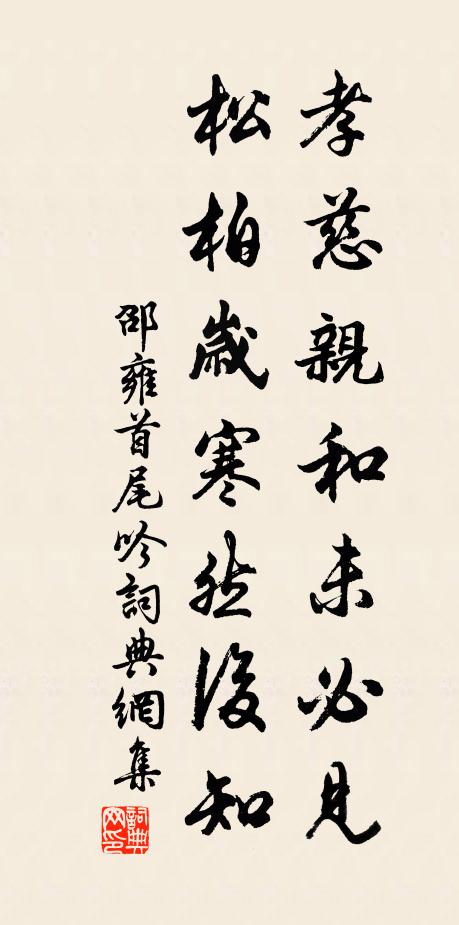 孝慈親和未必見
松柏歲寒然後知
邵雍首尾吟詞典網集
詞典网印